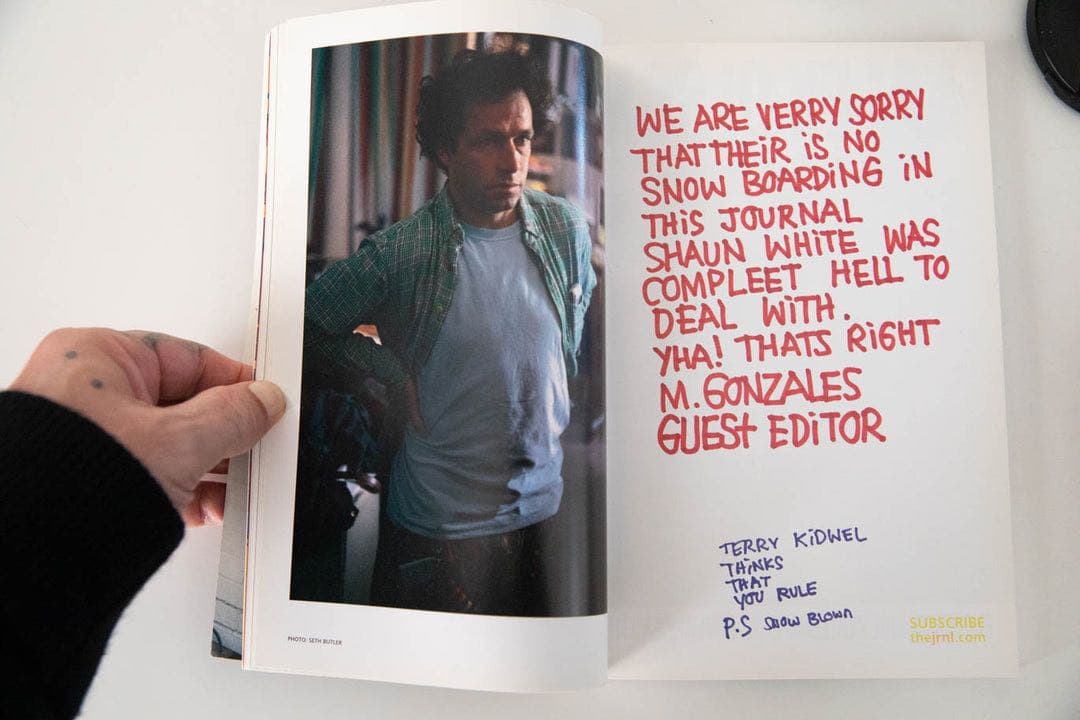 PHOTO: SETH BUTLER
WE ARE VERRY SORRY
THAT THEiR iS NO
SNOW BOARDiNG iN
THiS JOURNAL
SHAUN WHiTE WAS
COMPLEET HELL TO
DEAL WiTH.
YHA! THATS RiGHT
M. GONZALES
GUESt EDiTOR
TERRY KiDWEL
THiNKS
THAT
YOU RULE
P.S SNOW BLOWN
SUBSCRIBE
thejrnl.com